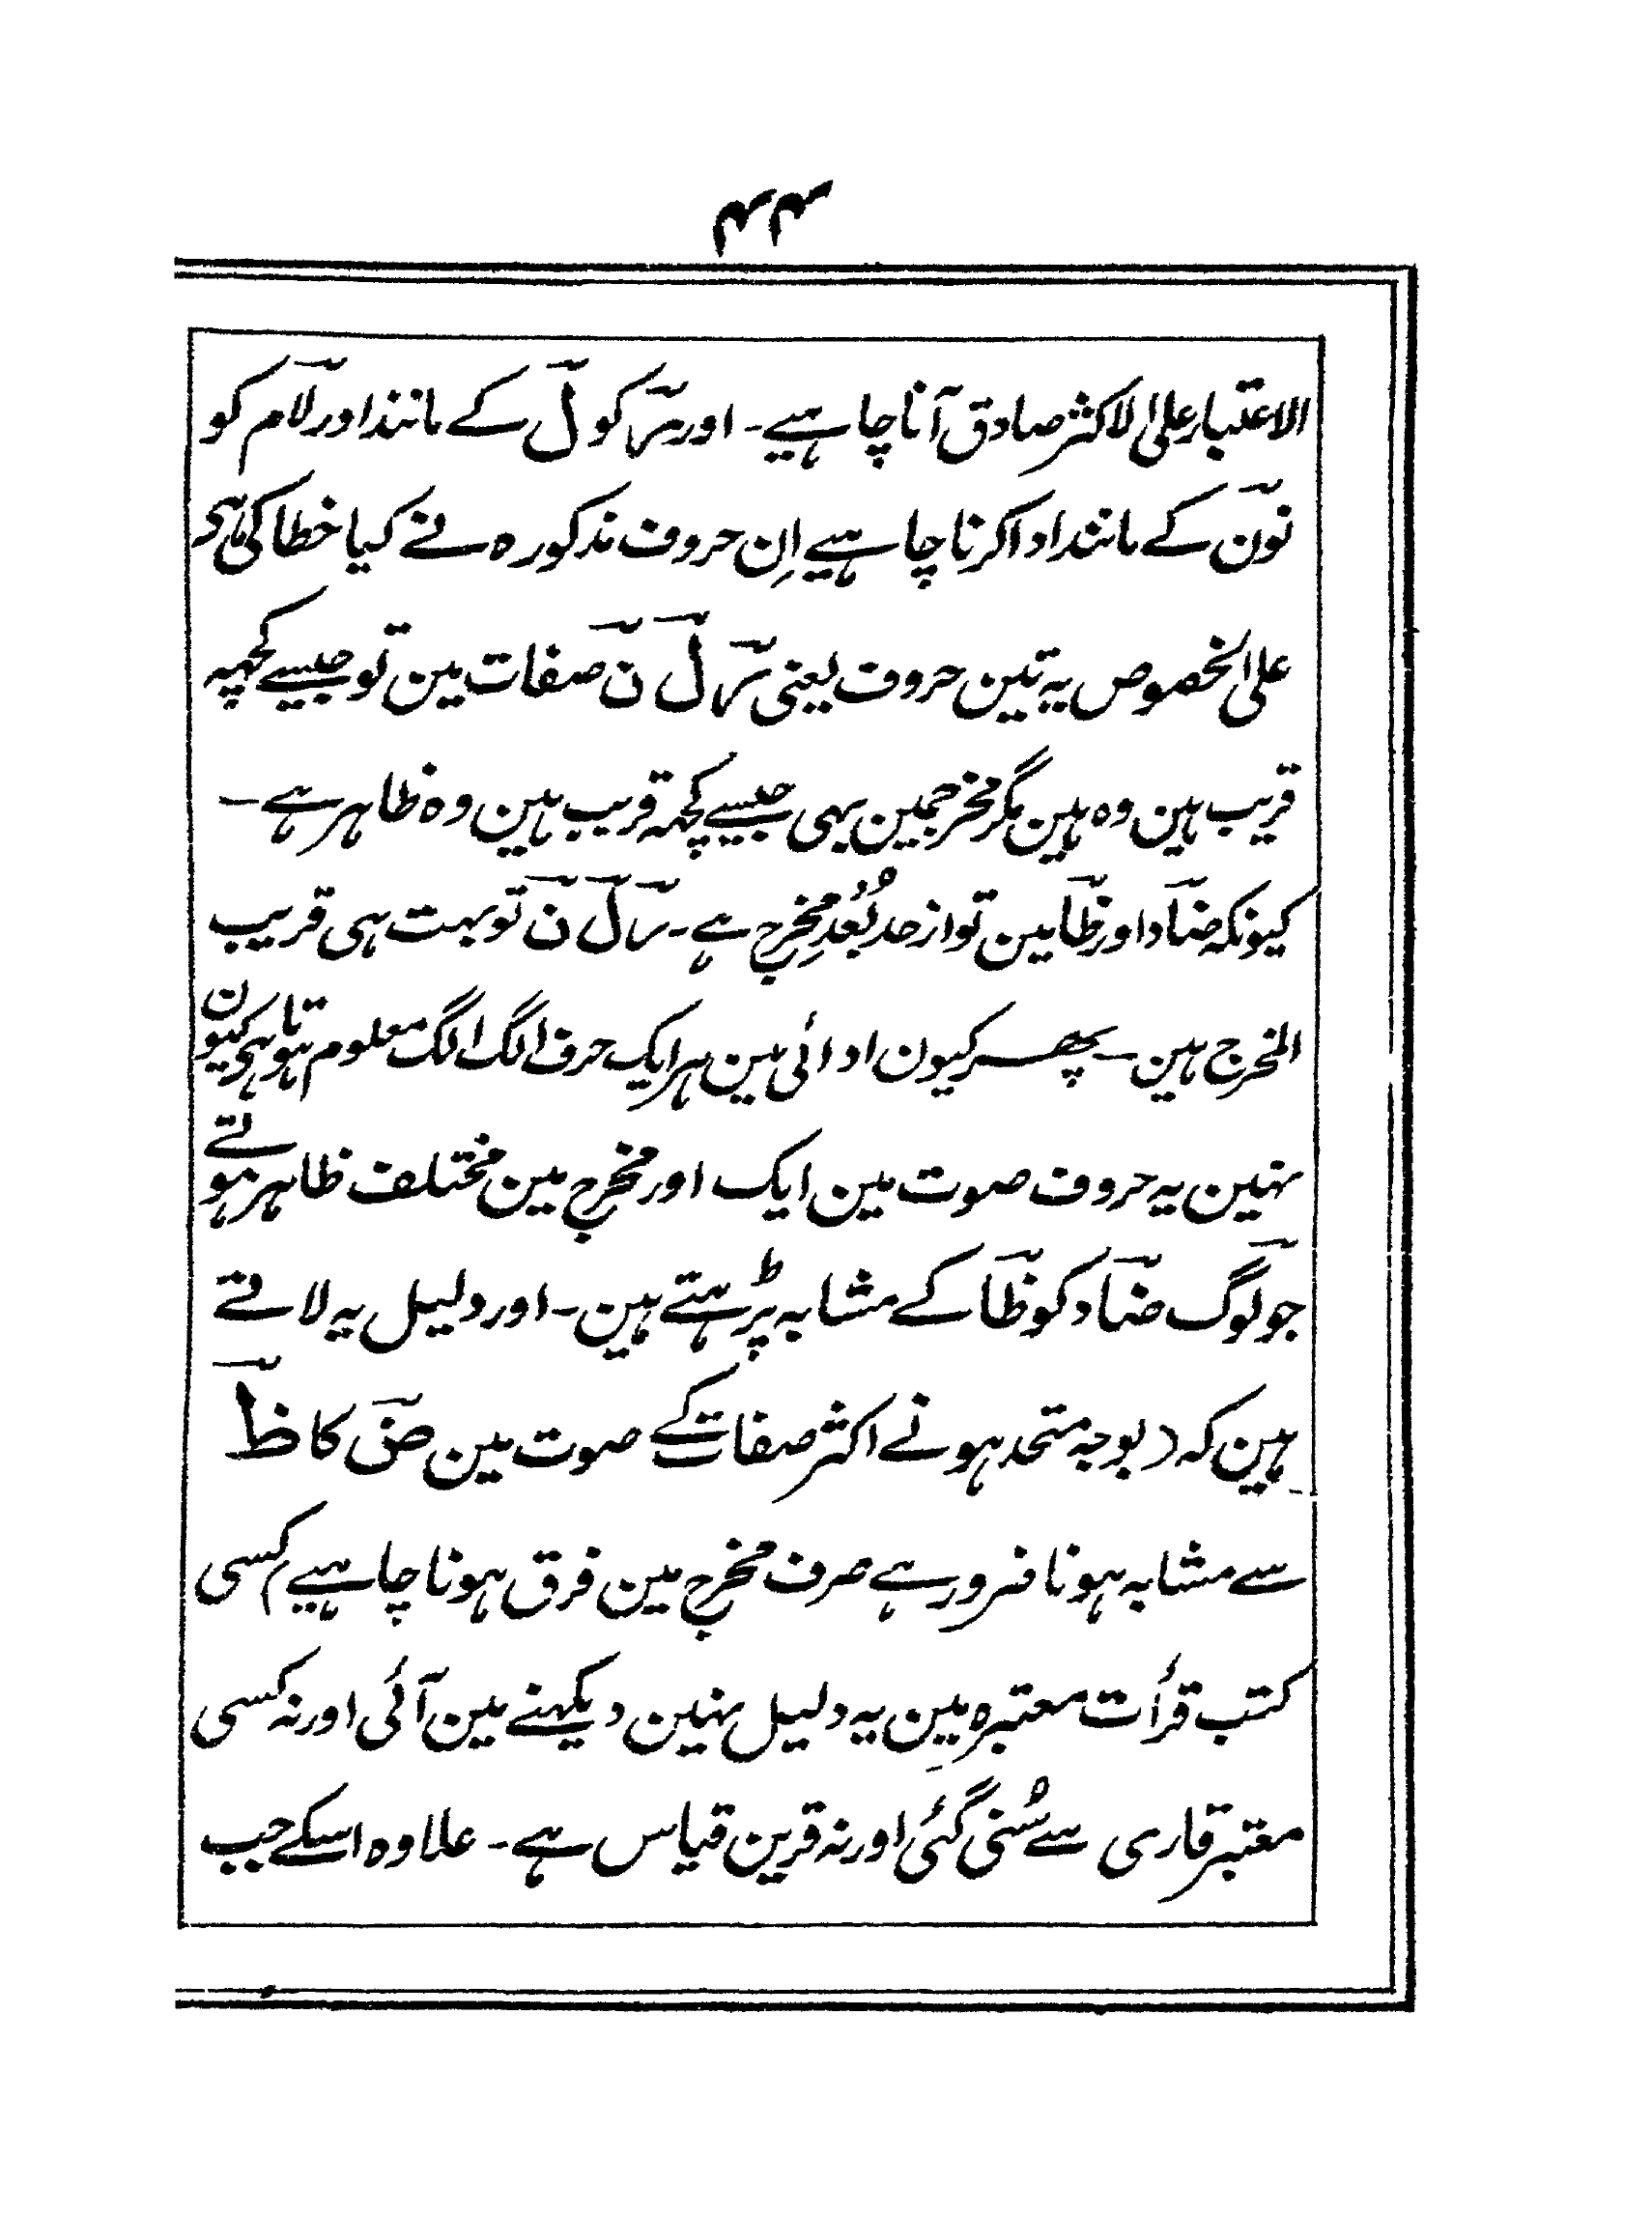 ۴۴
الاعتبار علی لاکثر صادق آنا چاہیے۔ اور رٓ کو لٓ کے مانند اور لآم کو
نوٓن کے مانند ادا کرنا چاہیے اِن حروف مذکورہ نے کیا خطا کی ہے
علی الخصوص یہ تین حروف یعنی رٓ لٓ نٓ صفات مین تو جیسے کچہہ
قریب ہین وہ ہین مگر مخرجمین بہی جیسے کچہہ قریب ہین وہ ظاہر ہے ۔
کیونکہ ضآد اور ظآ مین تو از حد بُعدِ مخرج ہے۔ رٓ لٓ نٓ تو بہت ہی قریب
المخرج ہین۔ پھر کیون ادائی مین ہر ایک حرف الگ الگ معلوم ہوتا ہی کیون
نہین یہ حروف صوت مین ایک اور مخرج مین مختلف ظاہر ہوتے
جو لوٓگ ضآد کو ظآ کے مشابہ پڑہتے ہین۔ اور دلیل یہ لاتے
ہین کہ (بوجہ متحد ہونے اکثر صفات کے صوت مین ضٓ کا ظٓ
سے مشابہ ہونا ضرور ہے صرف مخرج مین فرق ہونا چاہیے) کسی
کتب قرأت معتبرہ مین یہ دلیل نہین دیکہنے مین آئی اور نہ کسی
معتبر قاری سے سُنی گئی اور نہ قرین قیاس ہے۔ علاوہ اسکے جب